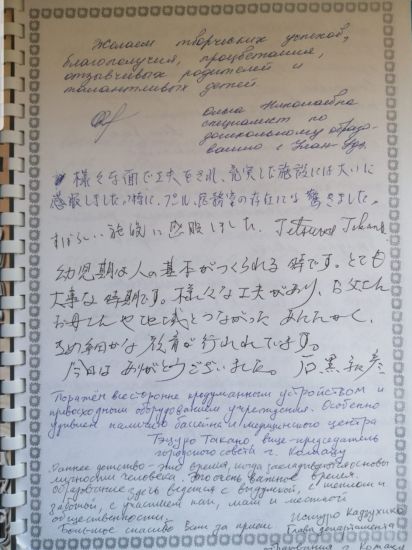 Желаем творческих успехов,
благополучия, процветания,
отзывчивых родителей и
талантливых детей
Ольга Николаевна
специалист по
дошкольному образо-
ванию г. Улан-Удэ
様々な面で工夫をされ、充実した施設には大いに
感服しました。特に、プール、医務室の存在には驚きました。
すばらしい施設に感服しました。
幼児期は人の基本がつくられる時です。とても
大事な時期です。様々な工夫があり、お父さん
お母さんや地域とつながった あたたかく、
きめ細かな教育が行われています。
今日はありがとうございました。石黒
Поражён всесторонне продуманным устройством и
превосходным оборудованием учреждения. Особенно
удивлён наличию бассейна и медицинского центра
Тэцуро Такано, вице-председатель
городского совета г. Комацу
Раннее детство - это время, когда закладываются основы
личности человека. Это очень важное время.
Образование здесь ведётся с выдумкой, с теплом и
заботой, с участием пап, мам и местной
общественности.
Большое спасибо Вам за приём Исигуро Кадзухико
Глава департамента
Комацу